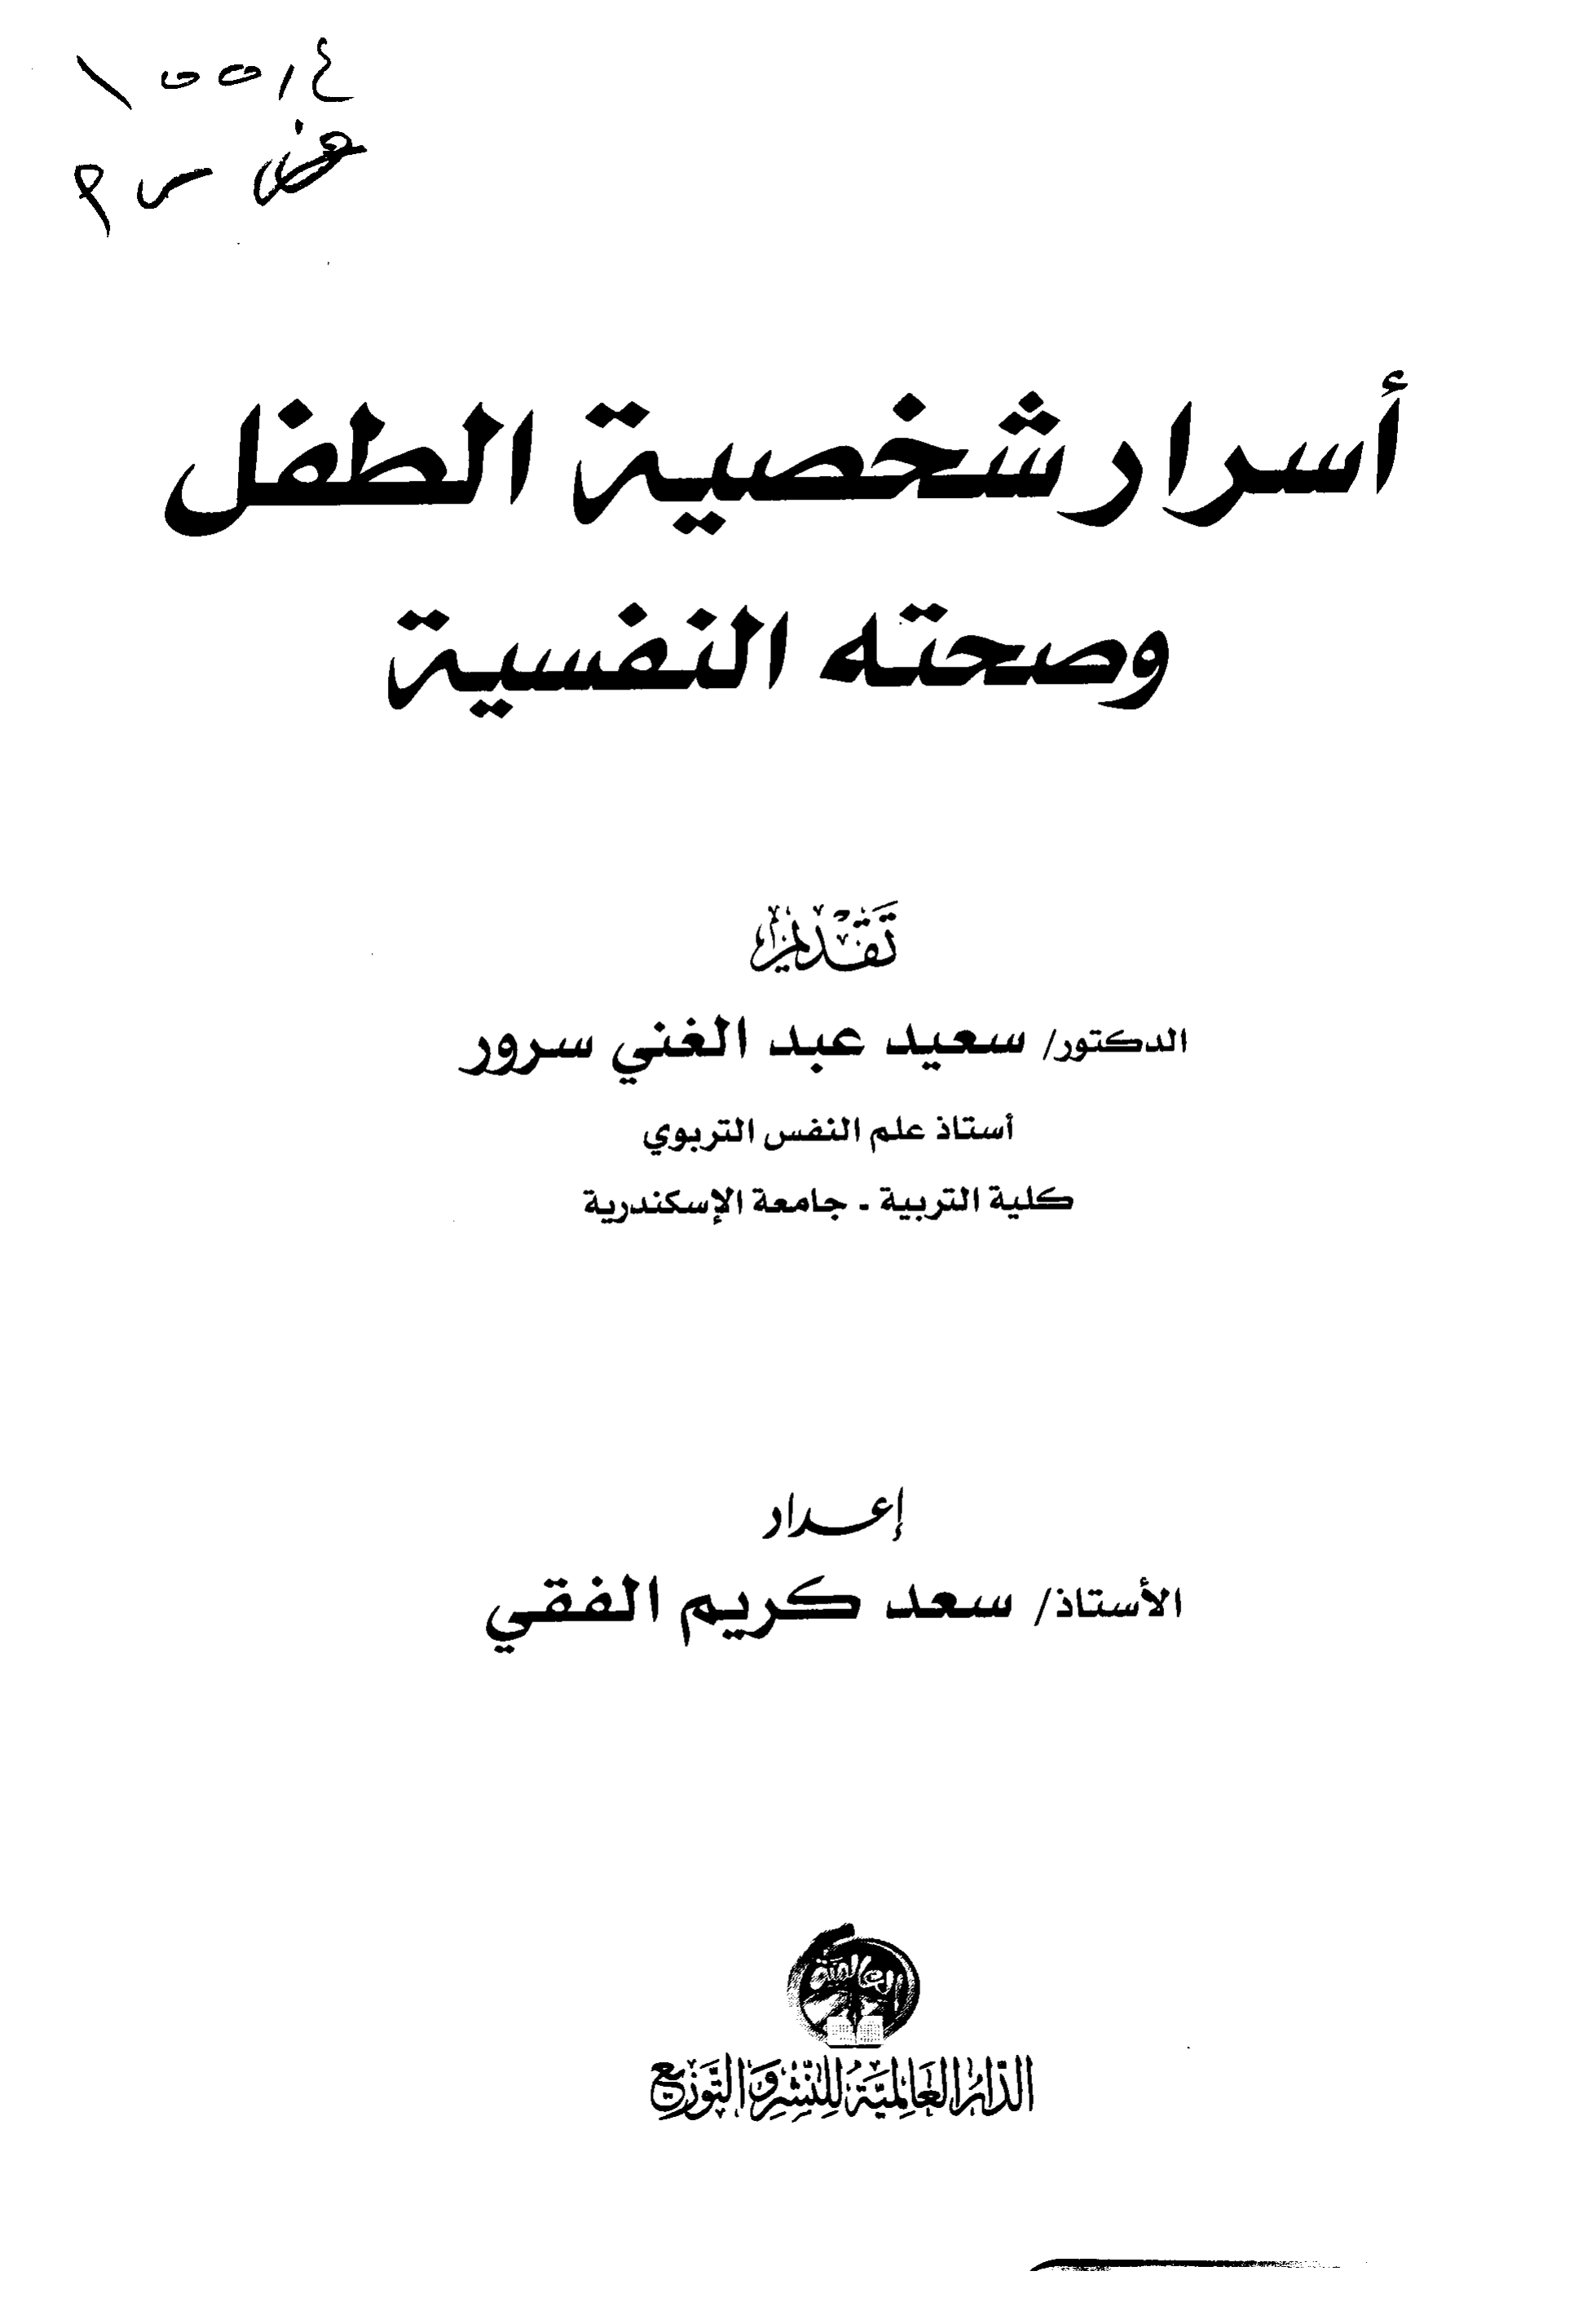 أسرار شخصية الطفل
وصحته النفسية
تقديم
الدكتور/ سعيد عبد الغني سرور
أستاذ علم النفس التربوي
كلية التربية - جامعة الإسكندرية
إعداد
الأستاذ/ سعد كريم الفقي
العالمية
الدار العالمية للنشر والتوزيع